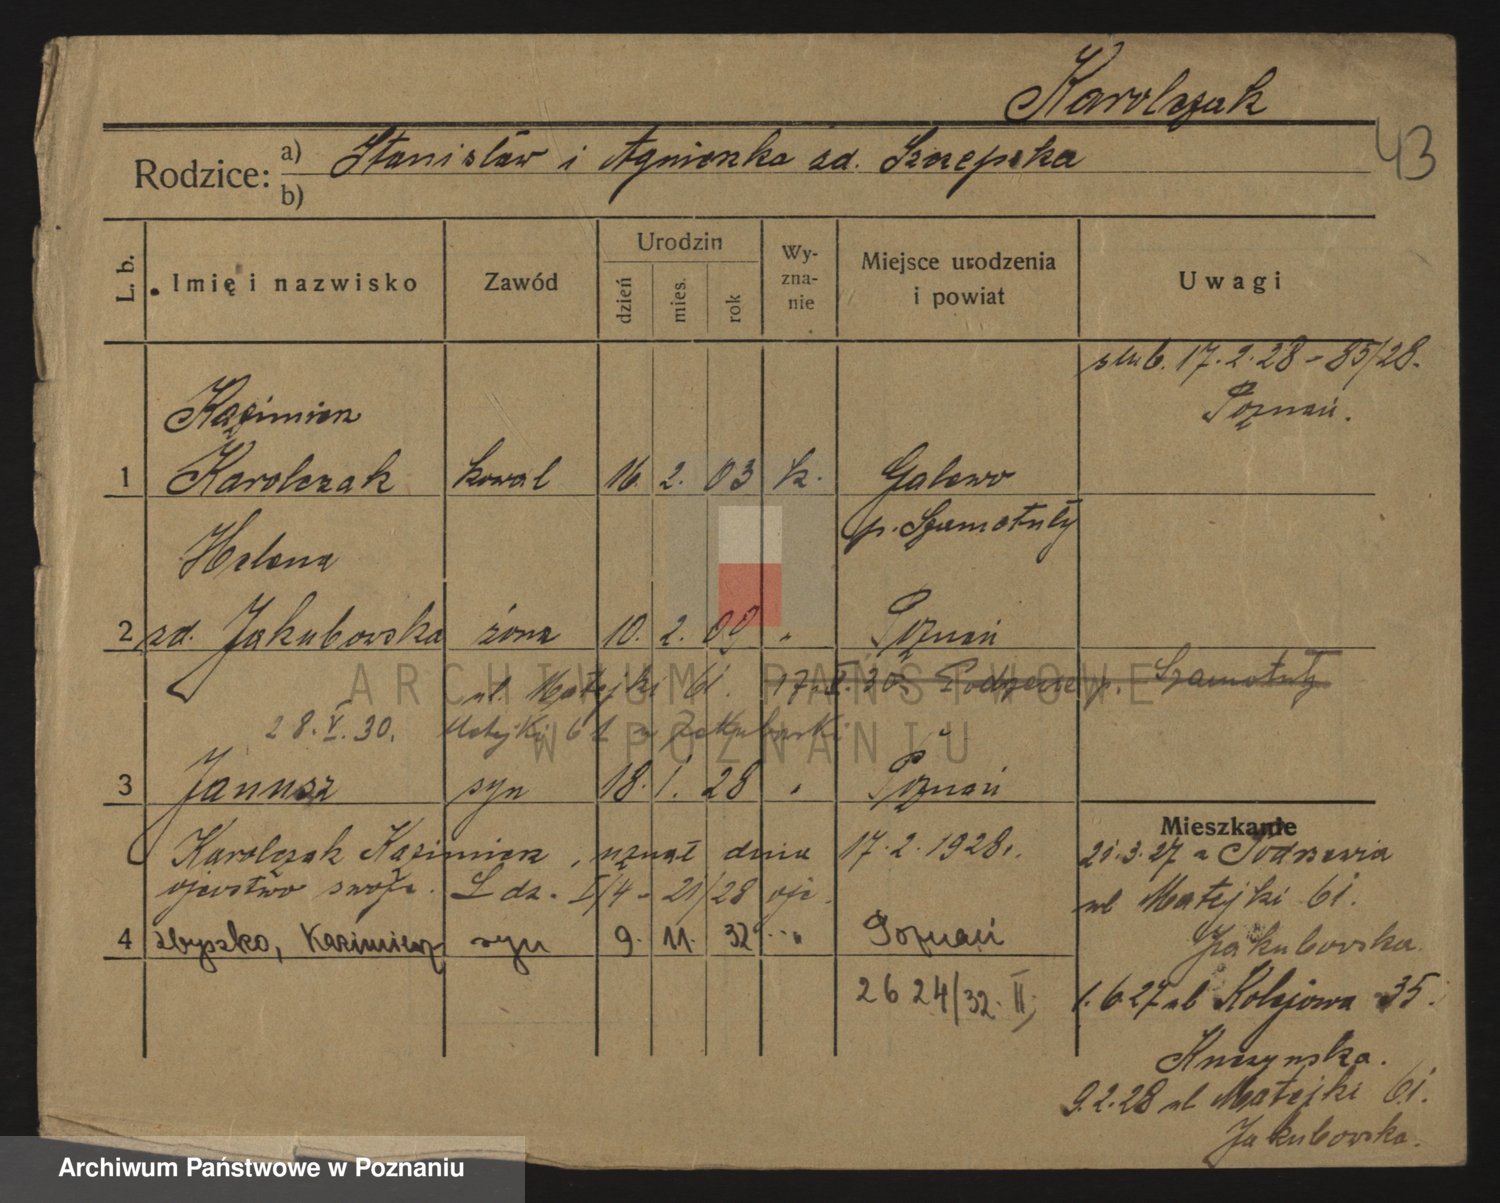 Karolczak
43
Rodzice: a) Stanisław i Agnieszka zd. Szczepska
b)
L. b. Imię i nazwisko Zawód Urodzin dzień mies. rok Wyznanie Miejsce urodzenia i powiat Uwagi
ślub. 17.2.28 - 85/28.
Poznań.
Kazimierz
1 Karolczak kowal 16. 2. 03 k. Galewo
p. Szamotuły
Helena
2 zd. Jakubowska żona 10. 2. 09 " Poznań
ul. Matejki 61. 17. X. 30 p. Szamotuły
28.V.30. Matejki 61 u Jakubowski
ARCHIWUM PAŃSTWOWE
W POZNANIU
3 Janusz syn 18. 1. 28 " Poznań
Karolczak Kazimierz, uznał dnia 17.2.1928.
ojcostwo swoje. L dz. I/4 - 21/28 ojc.
4 Zbyszko, Kazimierz syn 9. 11. 32 " Poznań
2624/32. II
Mieszkanie
21.3.27 z Podrzewia
ul Matejki 61.
Jakubowska.
1.6.27 ul Kolejowa 35.
9.2.28 ul Matejki 61.
Jakubowska.
Archiwum Państwowe w Poznaniu